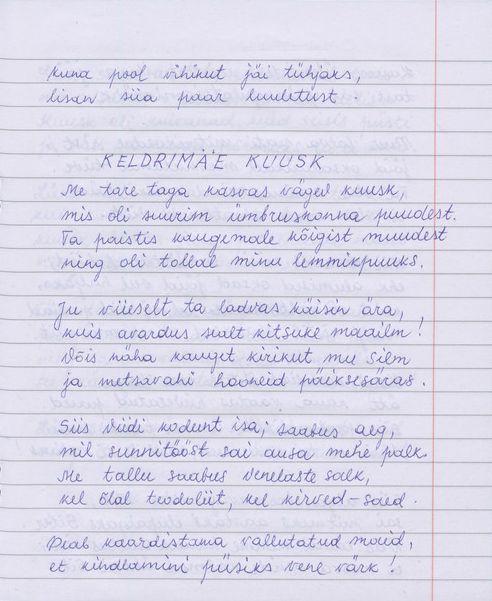 Kuna pool vihikut jäi tühjaks,
lisan siia paar luuletust.
KELDRIMÄE KUUSK
Me tare taga kasvas väged kuusk,
mis oli suurim ümbruskonna puudest.
Ta paistis kaugemale kõigist muudest
ning oli tollal minu lemmikpuuks.
Ju viieselt ta ladvas käisin ära,
kuis avardus sealt kitsuke maailm!
Võis näha kauget kirikut mu silm
ja metsavahi hooneid päiksesäras.
Siis viidi kodunt isa; saabus aeg,
mil sunnitööst sai ausa mehe palk.
Me tallu saabus venelaste salk,
kel õlal teodoliit, kel kirved-saed.
Peab kaardistama vallutatud maid,
et kindlamini püsiks vene värk!